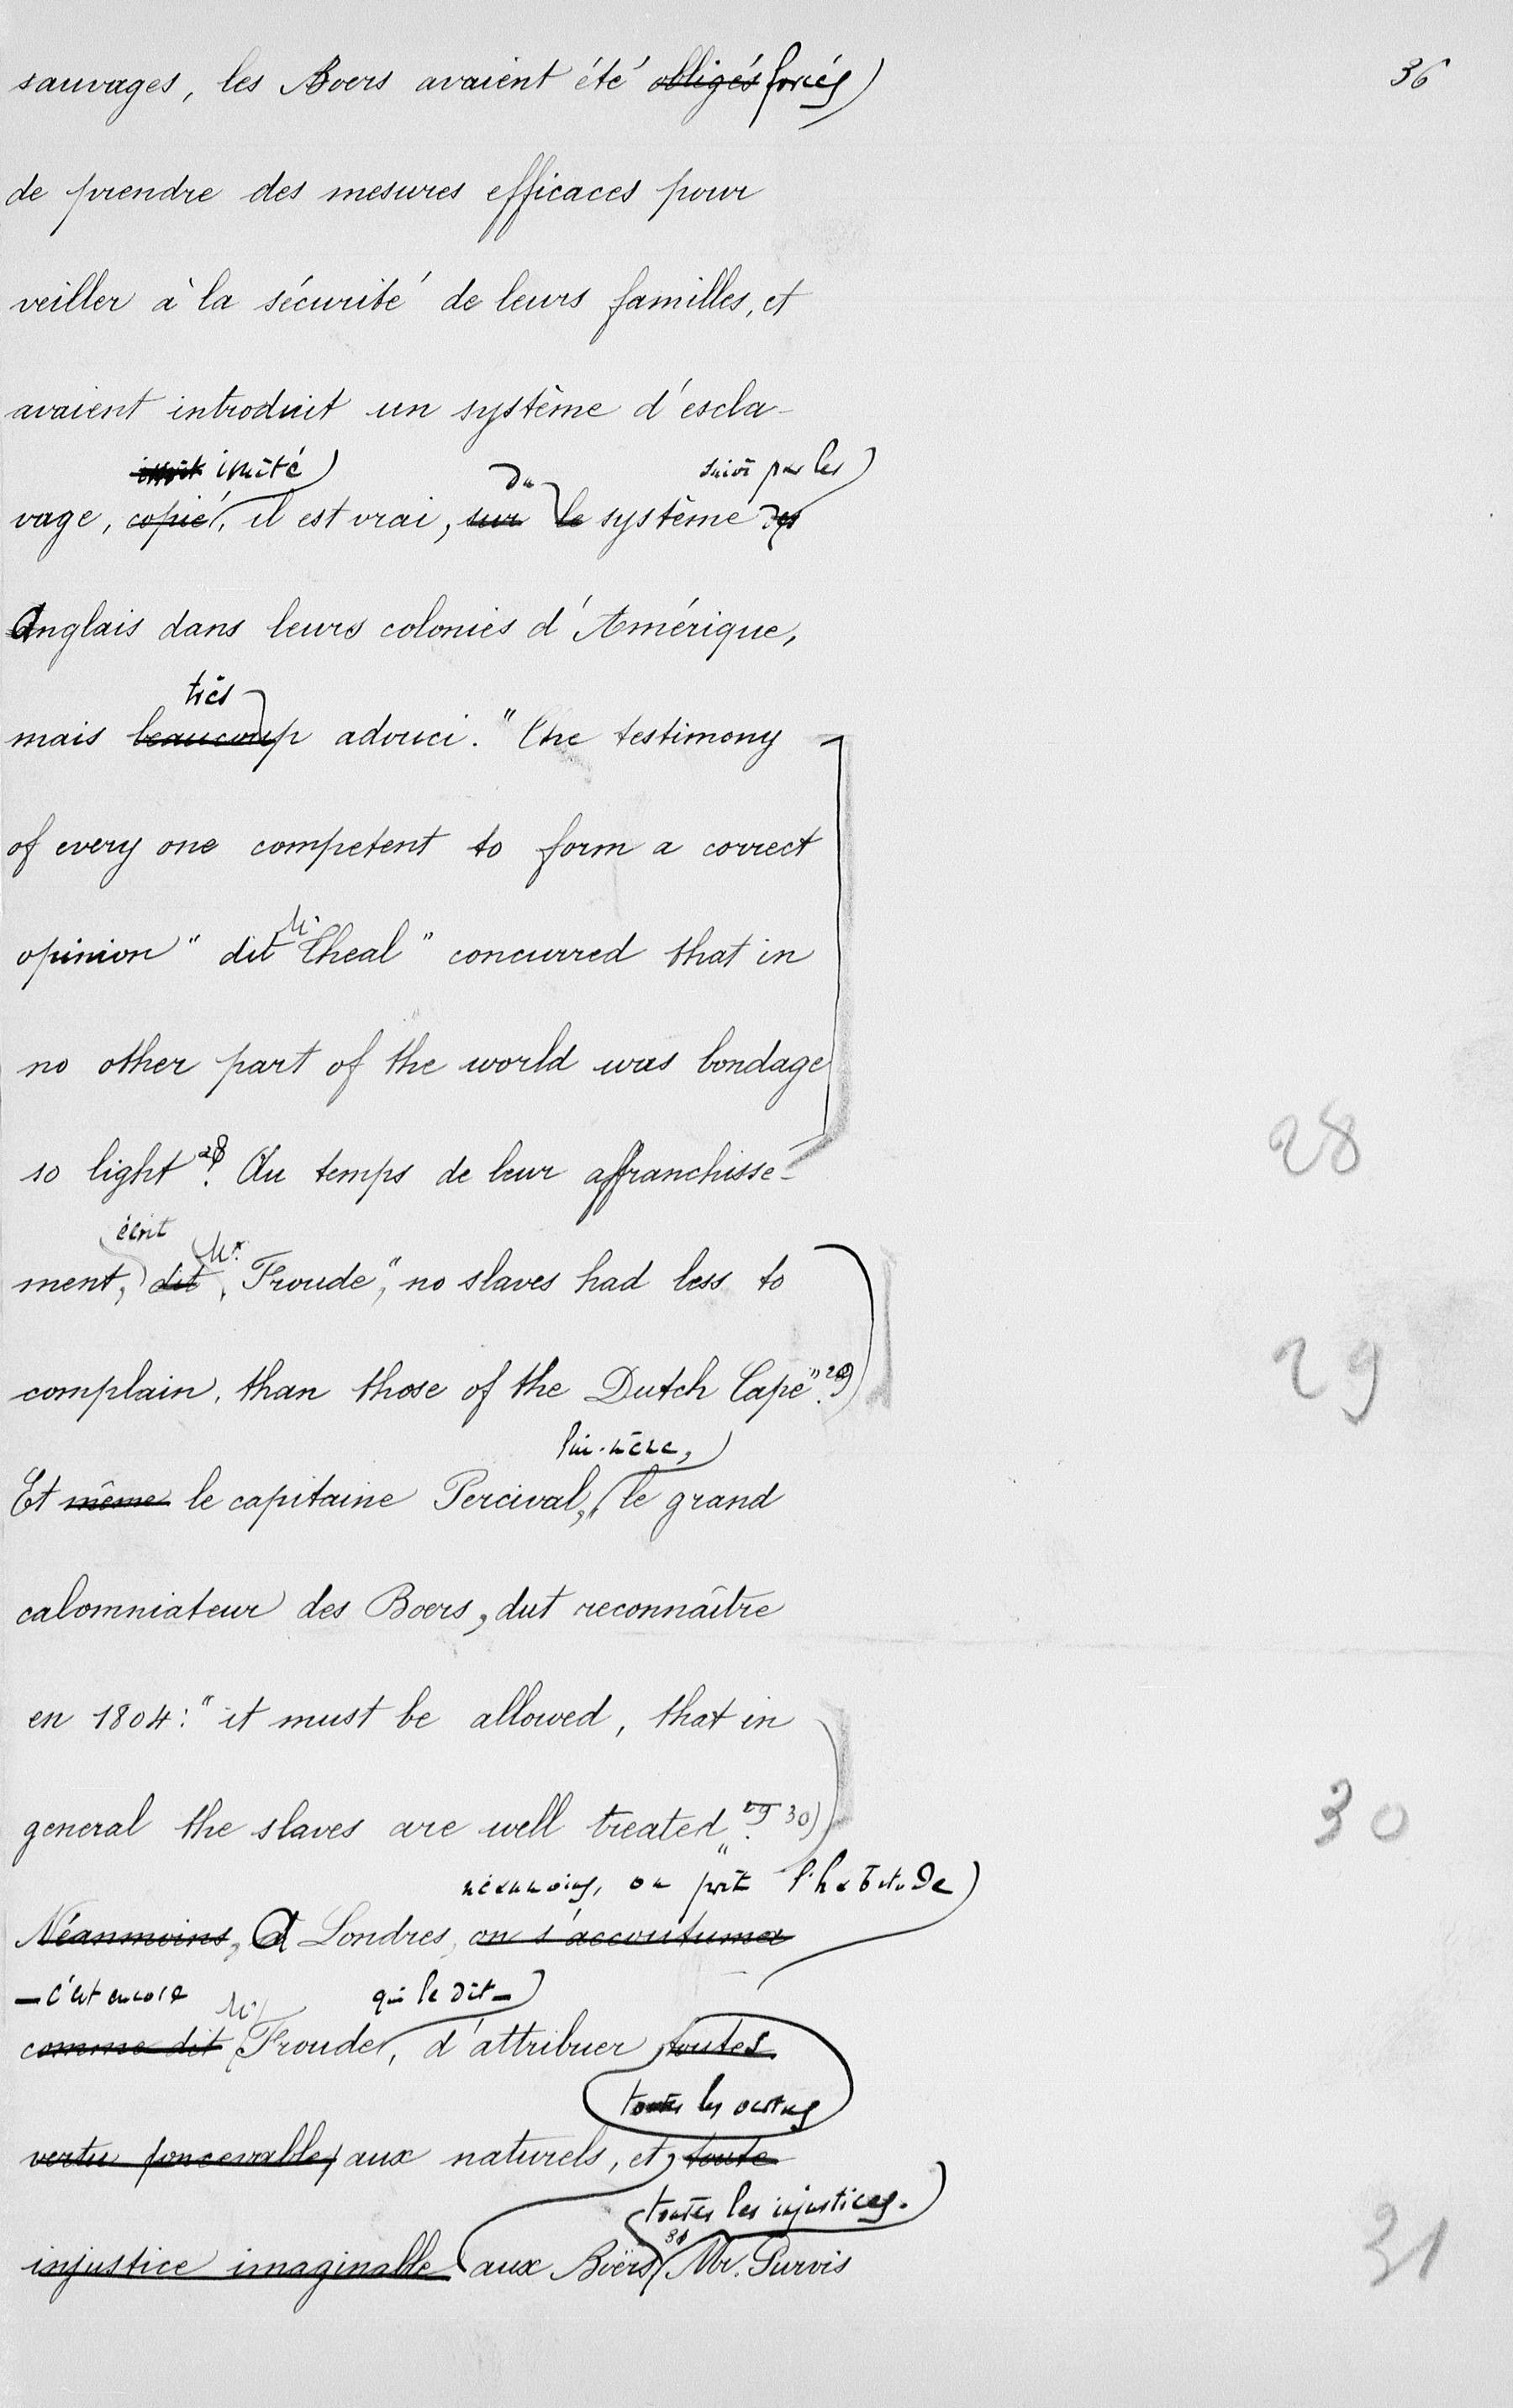 36
sauvages, les Boers avaient été obligés forcés
de prendre des mesures efficaces pour
veiller à la sécurité de leurs familles, et
avaient introduit un système d'escla-
imité du suivi par les
vage, copié, il est vrai, sur le système des
Anglais dans leurs colonies d'Amérique,
très
mais beaucoup adouci. "The testimony
of every one competent to form a correct
Mr
opinion" dit Theal "concurred that in
no other part of the world was bondage
so light"28. Au temps de leur affranchisse-
28
écrit Mr.
ment, dit, Froude, "no slaves had less to
complain, than those of the Dutch Cape".29)
29
lui-même,
Et même le capitaine Percival, le grand
calomniateur des Boers, dut reconnaître
en 1804: "it must be allowed, that in
general the slaves are well treated". 29 30)
30
néanmoins, on prit l'habitude
Néanmoins, A Londres, on s'accoutuma
— c'est encore Mr qui le dit —
comme dit Froude, d'attribuer toutes
toutes les vertus
vertu concevable, aux naturels, et toute
toutes les injustices.
injustice imaginable aux Boërs 31 Mr. Purvis
31